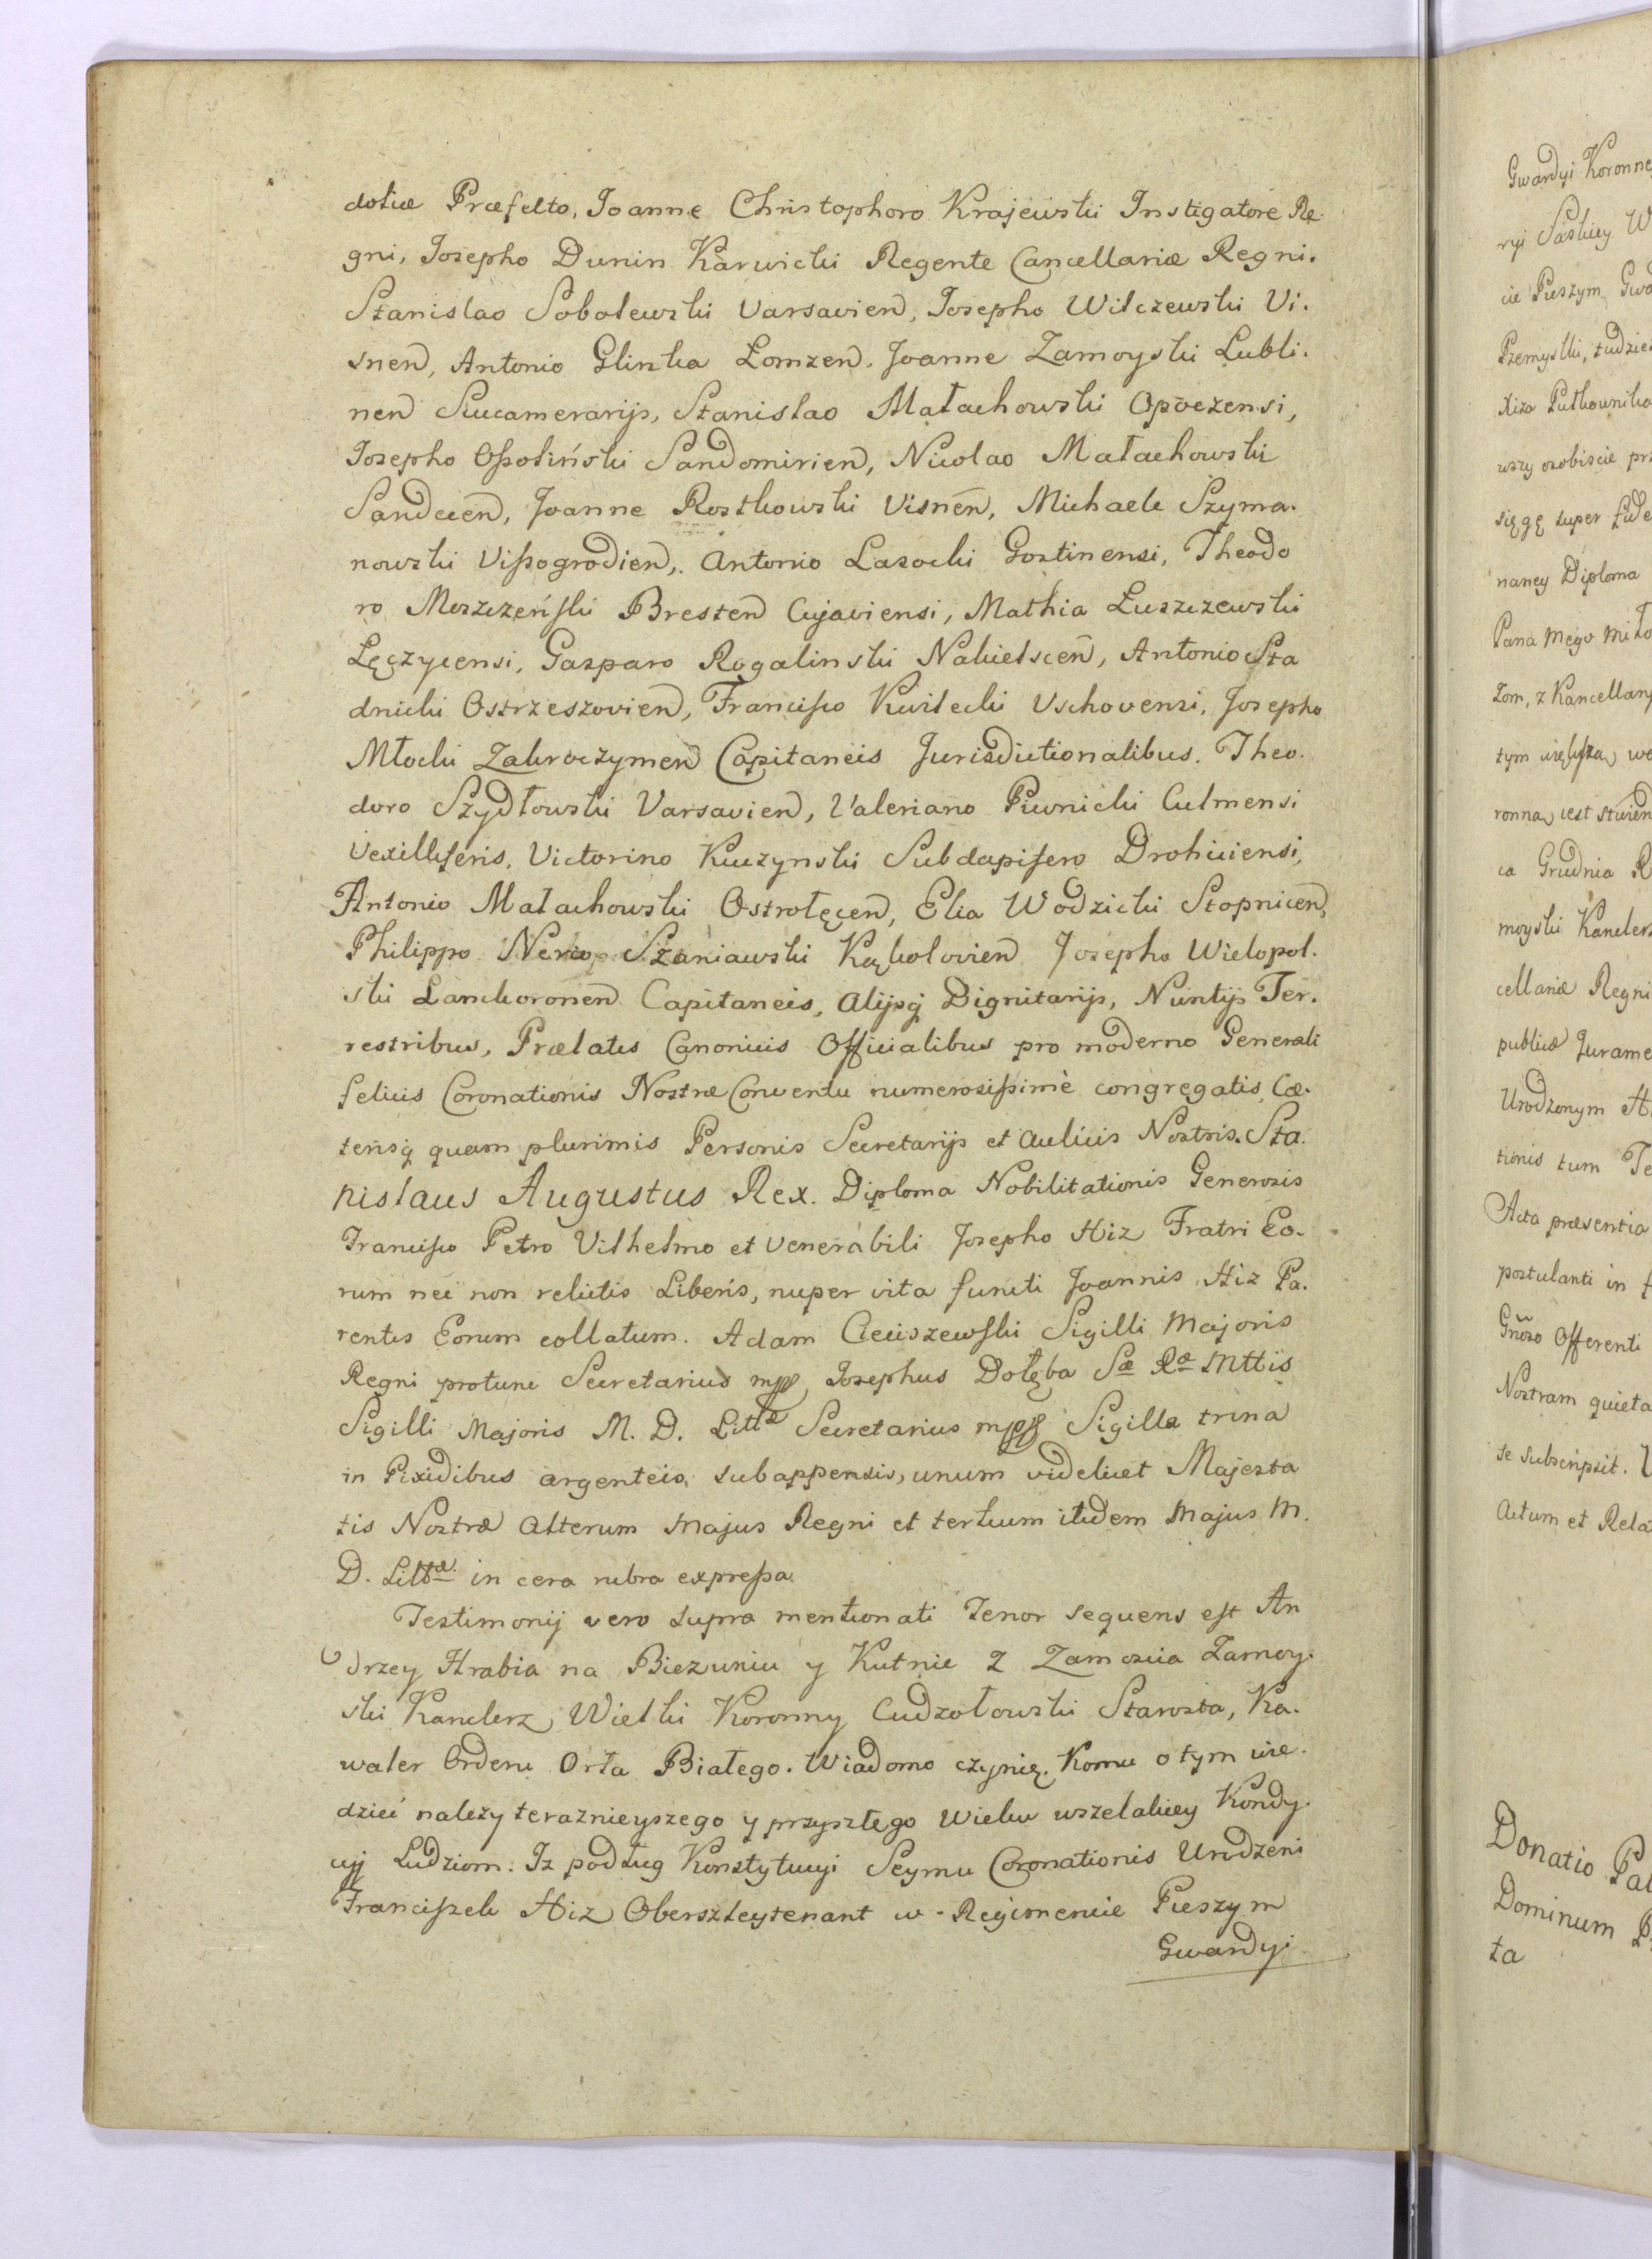 doliæ Præfecto, Joanne Christophoro Krajewski Instigatore Re-
gni, Josepho Dunin Karwicki Regente Cancellariæ Regni.
Stanislao Sobolewski Varsavien, Josepho Wilczewski Vi-
snen, Antonio Glinka Łomzen. Joanne Zamoyski Lubli-
nen Succamerarijs, Stanislao Małachowski Opoczensi,
Josepho Ossoliński Sandomirien, Nicolao Małachowski
Sandecen, Joanne Rostkowski Visnen, Michaele Szyma-
nowski Vissogrodien, Antonio Lasocki Gostinensi, Theodo
ro Moszczeński Bresten Cujaviensi, Mathia Łuszczewski
Łęczycensi, Gasparo Rogalinski Nakielscen, Antonio Sta
dnicki Ostrzeszovien, Francisco Kwilecki Vschovensi, Josepho
Młocki Zakroczymen Capitaneis Jurisdictionalibus. Theo-
doro Szydłowski Varsavien, Valeriano Piwnicki Culmensi
Vexilliferis, Victorino Kuczynski Subdapifero Drohiciensi,
Antonio Małachowski Ostrołęcen, Elia Wodzicki Stopnicen,
Philippo Nerio Szaniawski Kąkolovien Josepho Wielopol-
ski Lanckoronen Capitaneis, Alijsq Dignitarijs, Nuntijs Ter-
restribus, Prælatis Canonicis Officialibus pro moderno Generali
felicis Coronationis Nostræ Conventu numerosissimè congregatis, Cæ-
terisq quam plurimis Personis Secretarijs et Aulicis Nostris. Sta-
nislaus Augustus Rex. Diploma Nobilitationis Generosis
Francisco Petro Vilhelmo et Venerabili Josepho Hiz Fratri Eo-
rum nec non relictis Liberis, nuper vita functi Joannis Hiz Pa-
rentis Eorum collatum. Adam Cieciszewski Sigilli Majoris
Regni protunc Secretarius mpp, Josephus Dołęba Sæ Ræ Mttis
Sigilli Majoris M. D. Littæ Secretarius mpp Sigilla trina
in Pixidibus argenteis subappensis, unum videlicet Majesta
tis Nostræ Alterum Majus Regni et tertium itidem Majus M.
D. Littæ in cera rubra expressa.
Testimonij vero supra mentionati Tenor sequens est An
drzey Hrabia na Biezuniu y Kutnie Z Zamoscia Zamoy-
ski Kanclerz Wielki Koronny Cudzołowski Starosta, Ka-
waler Orderu Orła Białego. Wiadomo czynię. Komu o tym wie-
dzieć należy teraznieyszego y przyszłego Wieku wszelakiey Kondy-
cyj Ludziom. Iz podług Konstytucyi Seymu Coronationis Urodzeni
Franciszek Hiz Oberszleytenant w Regimencie Pieszym
Gwardyi
Gwardyi Koronne
ryi Saskiey W
cie Pieszym Gwa
Przemyslki, tudzież
Hiza Pułkownika
wszy osobiscie prz
sięgę super fide
naney Diploma
Pana Mego Miło
Zom, z Kancellary
tym więkſza we
ronna iest stwier
ca Grudnia R
moyski Kanclerz
cellariæ Regni
publicæ Jurame
Urodzonym H
tionis tum Te
Acta præsentia
postulanti in f
Gnoso Offerenti
Nostram quieta
se subscripsit. V
Actum et Rela
Donatio Pal
Dominum P
ta